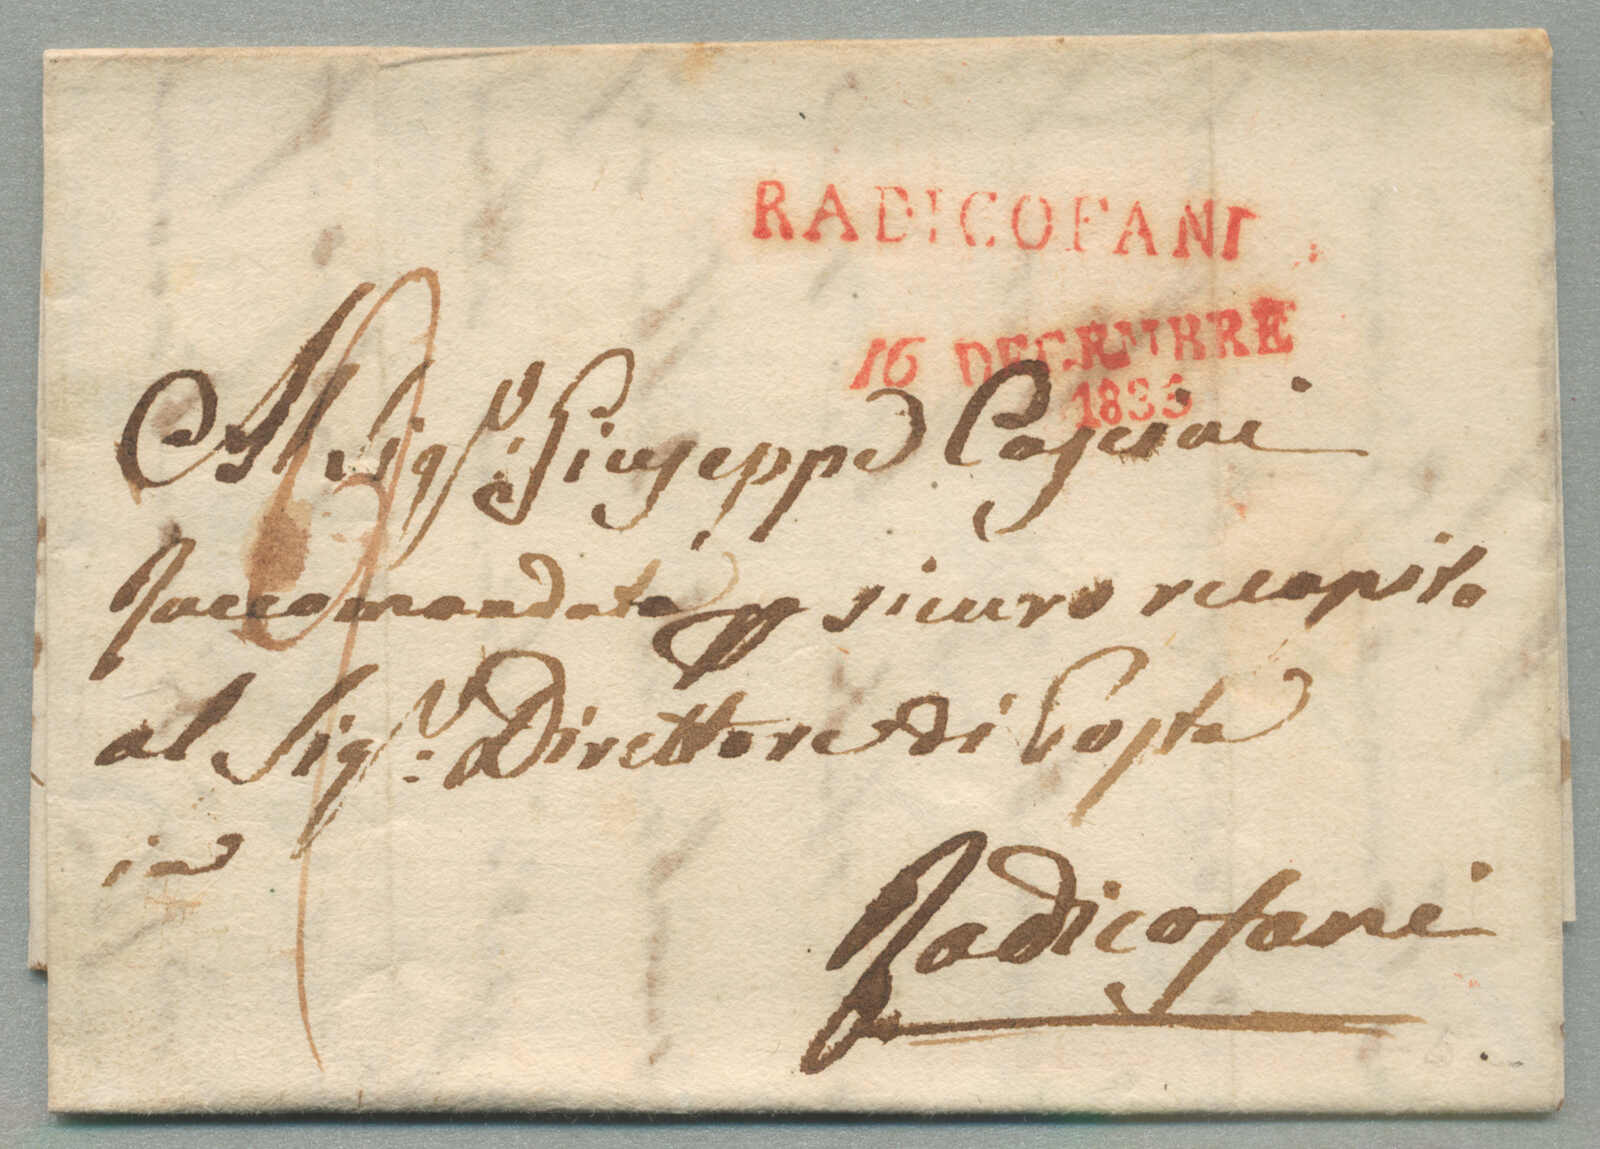 RADICOFANI
16 DECEMBRE
1835
Al Sig.r Giuseppe
Raccomandata p sicuro recapito
al Sig.r Direttore di Posta
in
Radicofani